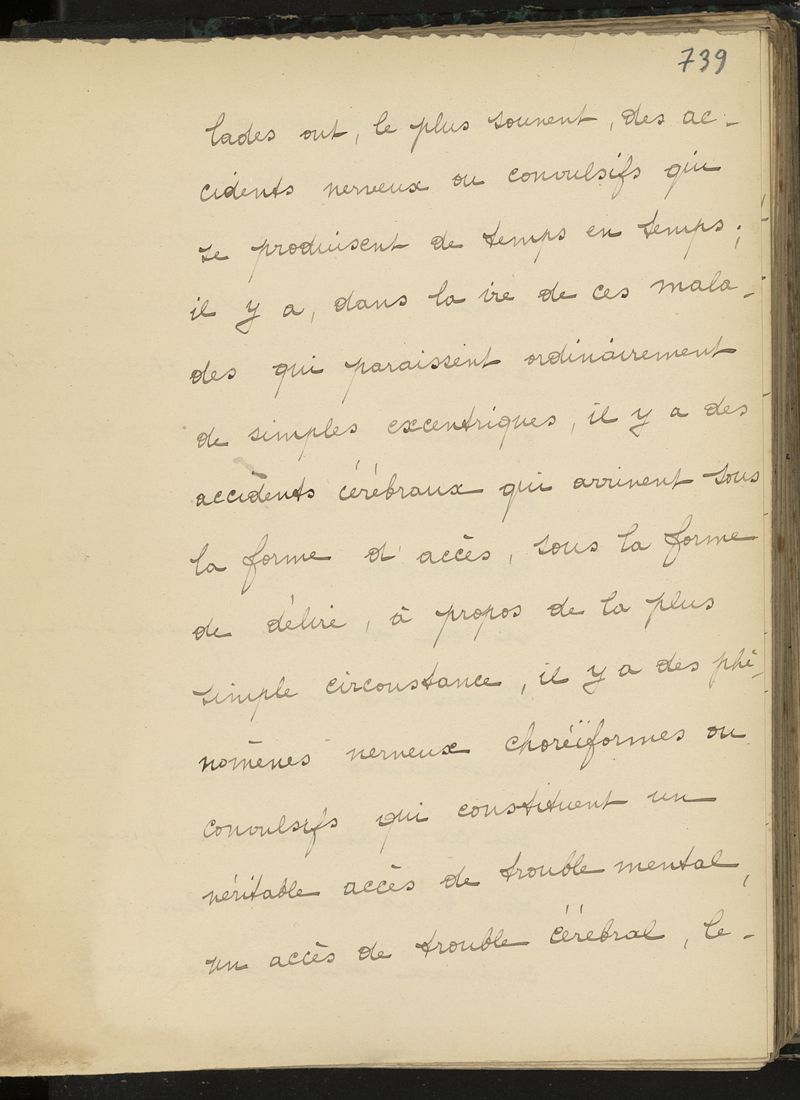 739
lades ont, le plus souvent, des ac-
cidents nerveux ou convulsifs qui
se produisent de temps en temps;
il y a, dans la vie de ces mala-
des qui paraissent ordinairement
de simples excentriques, il y a des
accidents cérébraux qui arrivent sous
la forme d'accès, sous la forme
de délire, à propos de la plus
simple circonstance, il y a des phé-
nomènes nerveux choréïformes ou
convulsifs qui constituent un
véritable accès de trouble mental,
un accès de trouble cérébral, le-